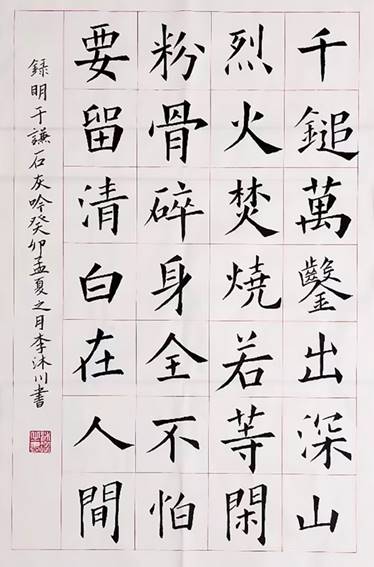 千鎚萬鑿出深山
烈火焚燒若等閑
粉骨碎身全不怕
要留清白在人間
錄明于謙石灰吟癸卯孟夏之月李沐川書